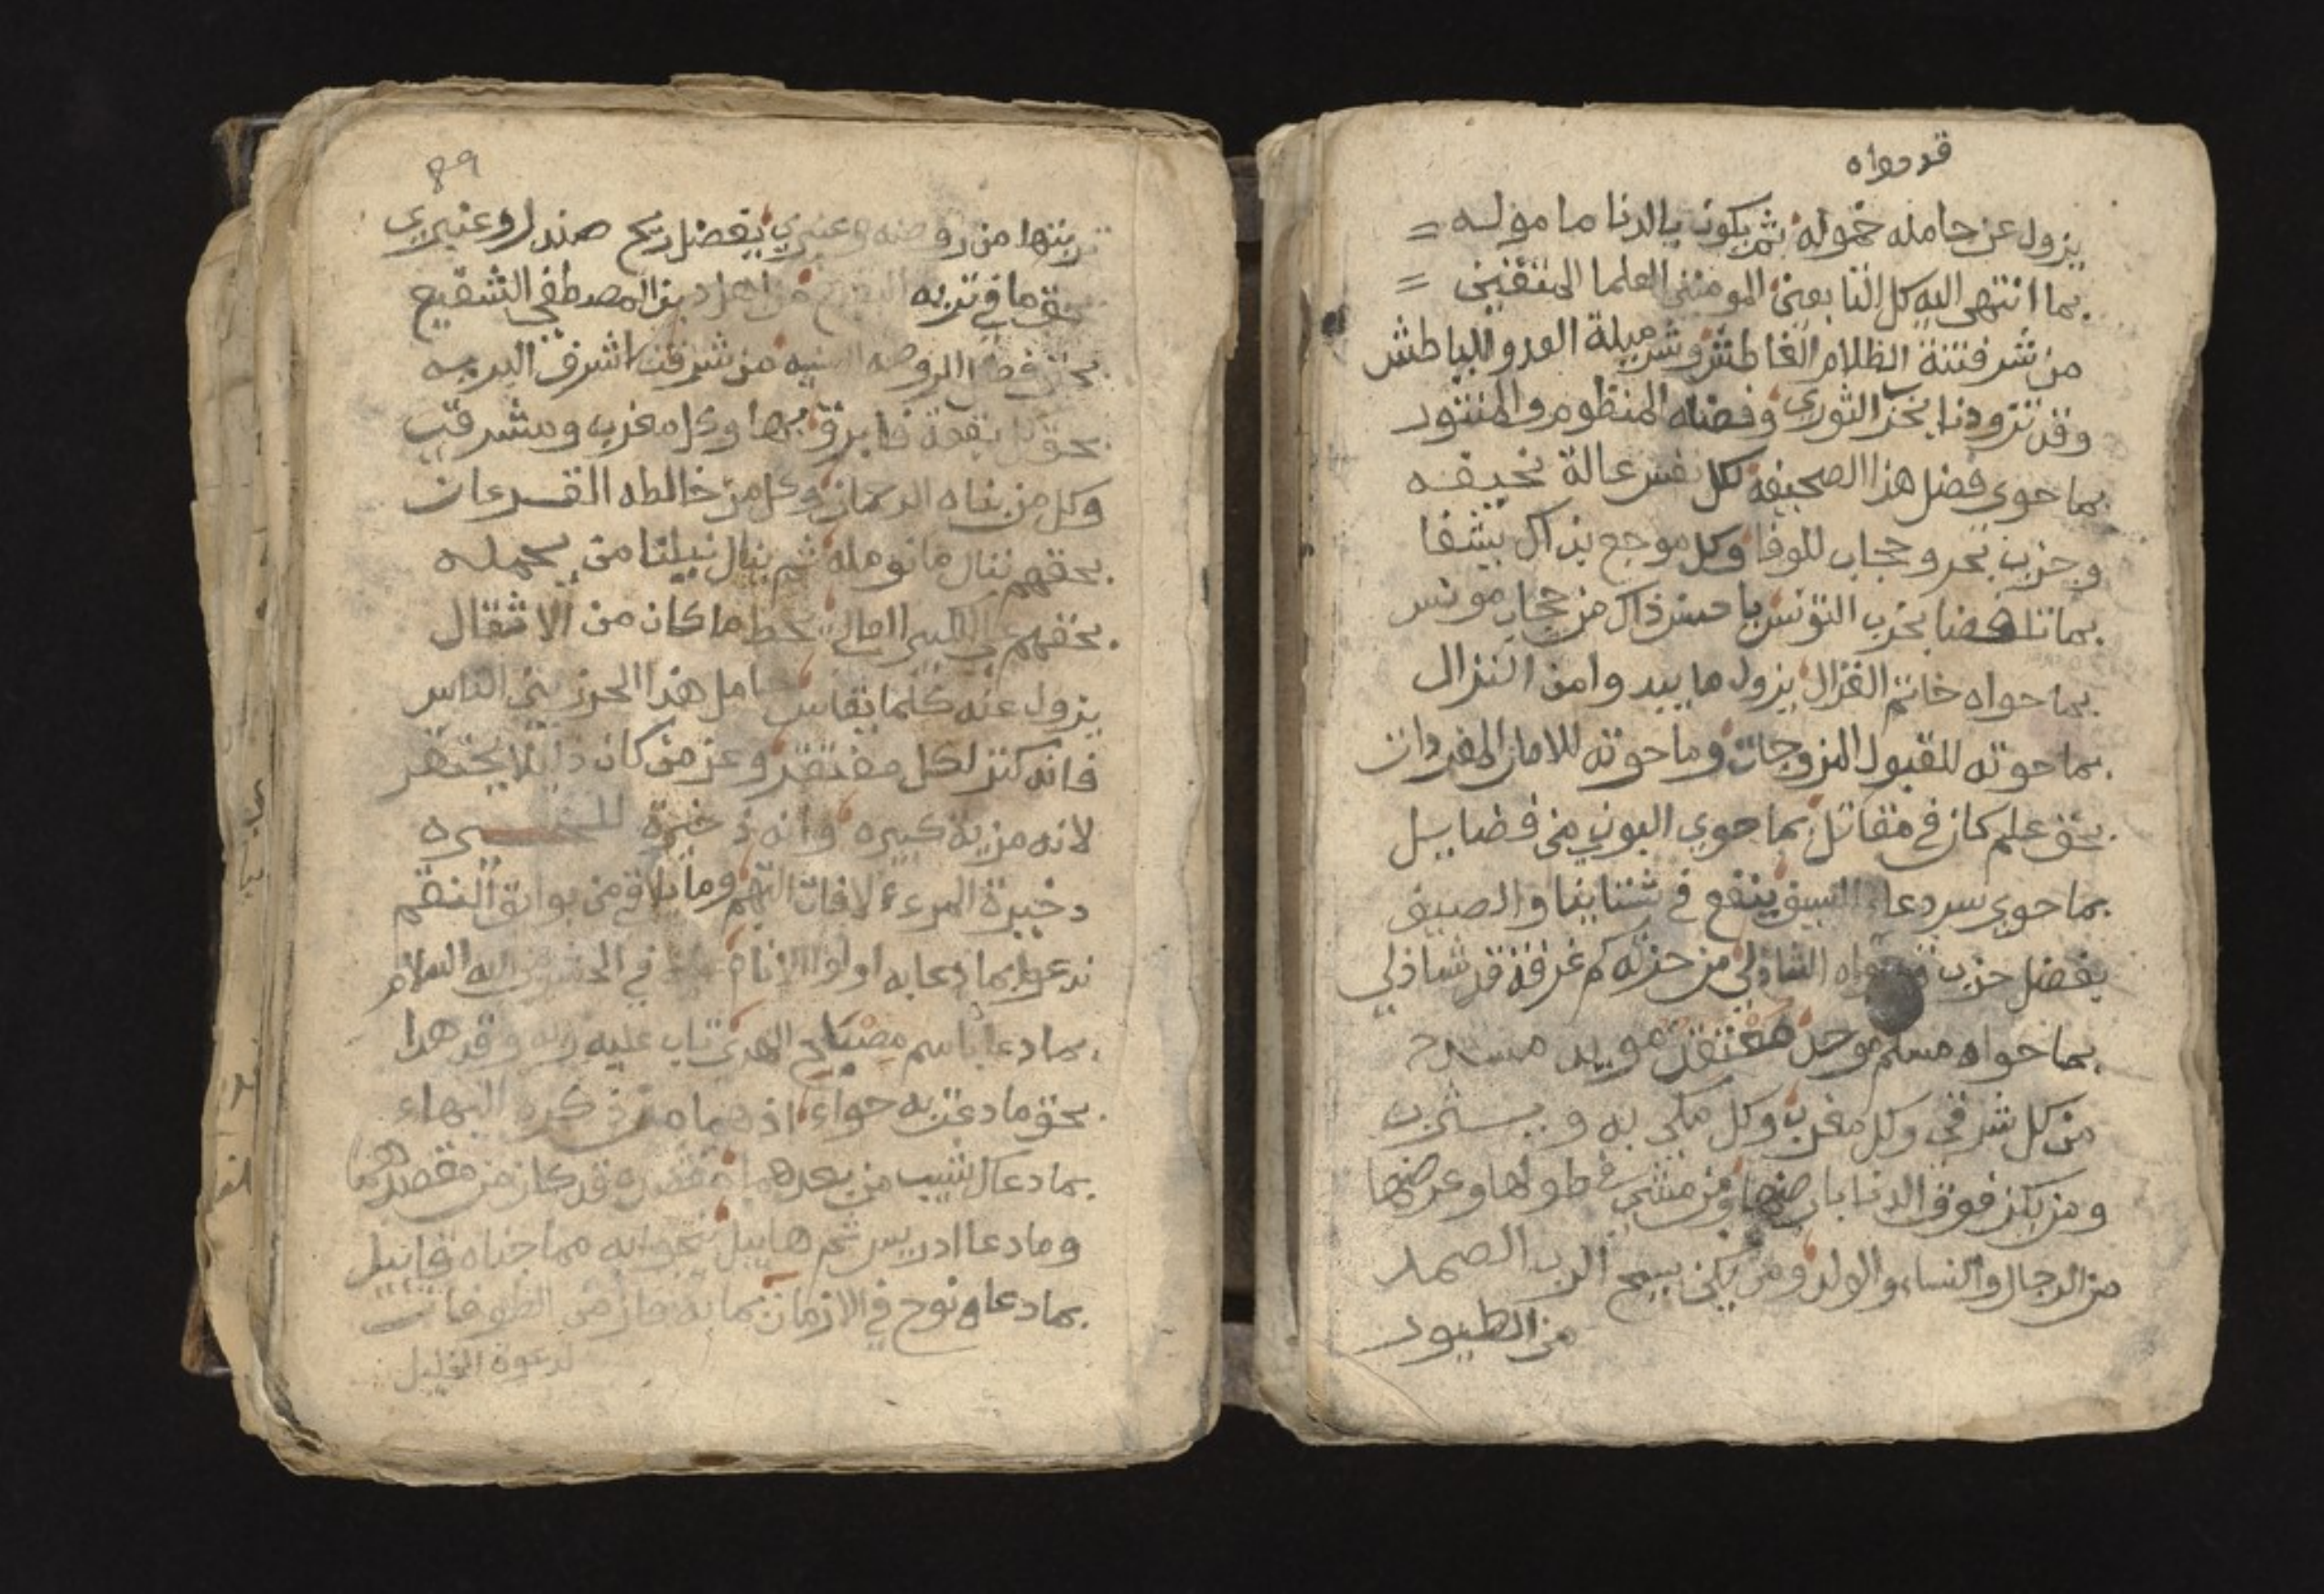 قد حواه
يزول عن حامله خموله ثم يكون بالدنا مامولـه =
بما انتهى اليه كل التابعين المومنين العلما المتقنين =
من شر فتنة الظلام الغاطش وشر ميلة العدو الباطش
وقد تزودنا بحزب الثوري وفضله المنظوم والمنثور
بما حوي فضل هذا الصحيفه لكل نفس عالة نحيفـه
وحزب بحر وحجاب للوفا وكل موجع بذاك يشفا
بما تلخصنا بحزب التونس يا حسن ذاك من حجاب مونس
بما حواه خاتم الغزال يزول ما يبدوا من النزال
بما حوته للقبول المزوجات وما حوته للامان المفردات
بحق علم كان في مقاتل بما حوي البوني من فضايـل
بما حوي سر دعاء السيف ينفع في شتاينا والصيف
بفضل حزب الشاذلي من حزبه كم غرفة قد شاذلي
بما حواه مسلم موحد معتقد مويد مسدد
من كل شرقي وكل مغرب وكل مكي به ويـثرب
ومن يكن فوق الدنا بارضها ومن مشي في طولها وعرضها
من الرجال والنساء والولد ومن يكن يسبح الرب الصمـد
من الطيور
89
تربتها من روضه وعنبري بفضل ريح صندل وعنبري
بحق ما في تربه البقيع من اهل دين المصطفي الشفيع
بحق فضل الروضه السنيه من شرفت اشرف البريـه
بحق كل بقعة بها وكل مغرب ومشرق
وكل من بناه الرحمان وكل من خالطه القـرءان
بحقهم ننال ما نومله ثم ينال نيلنا من يحملـه
بحقهم يحط ما كان من الاثقال
يزول عنه كلما يقاس حامل هذا الحرز بين الناس
فانه كنز لكل مفتقر وعز من كان ذليلا يحتقر
لانه مزية كبيره وانه ذخيرة
دخيرة المرء لافات التهم وما يلاقي من بوائق النقم
ندعوا بما دعا به اولوا الانام في الحشر من اليه السلام
بما دعا باسم مصباح الهدى تاب عليه وقد هدا
بحق ما دعت به حواء اذ هما من ذكره البهاء
بما دعا شيب من بعدهما فقصده قد كان من مقصدهما
وما دعا ادريس ثم هابيل مما جناه قابيل
بما دعاه نوح في الازمان بما به فاز من الطوفان
لدعوة الخليل